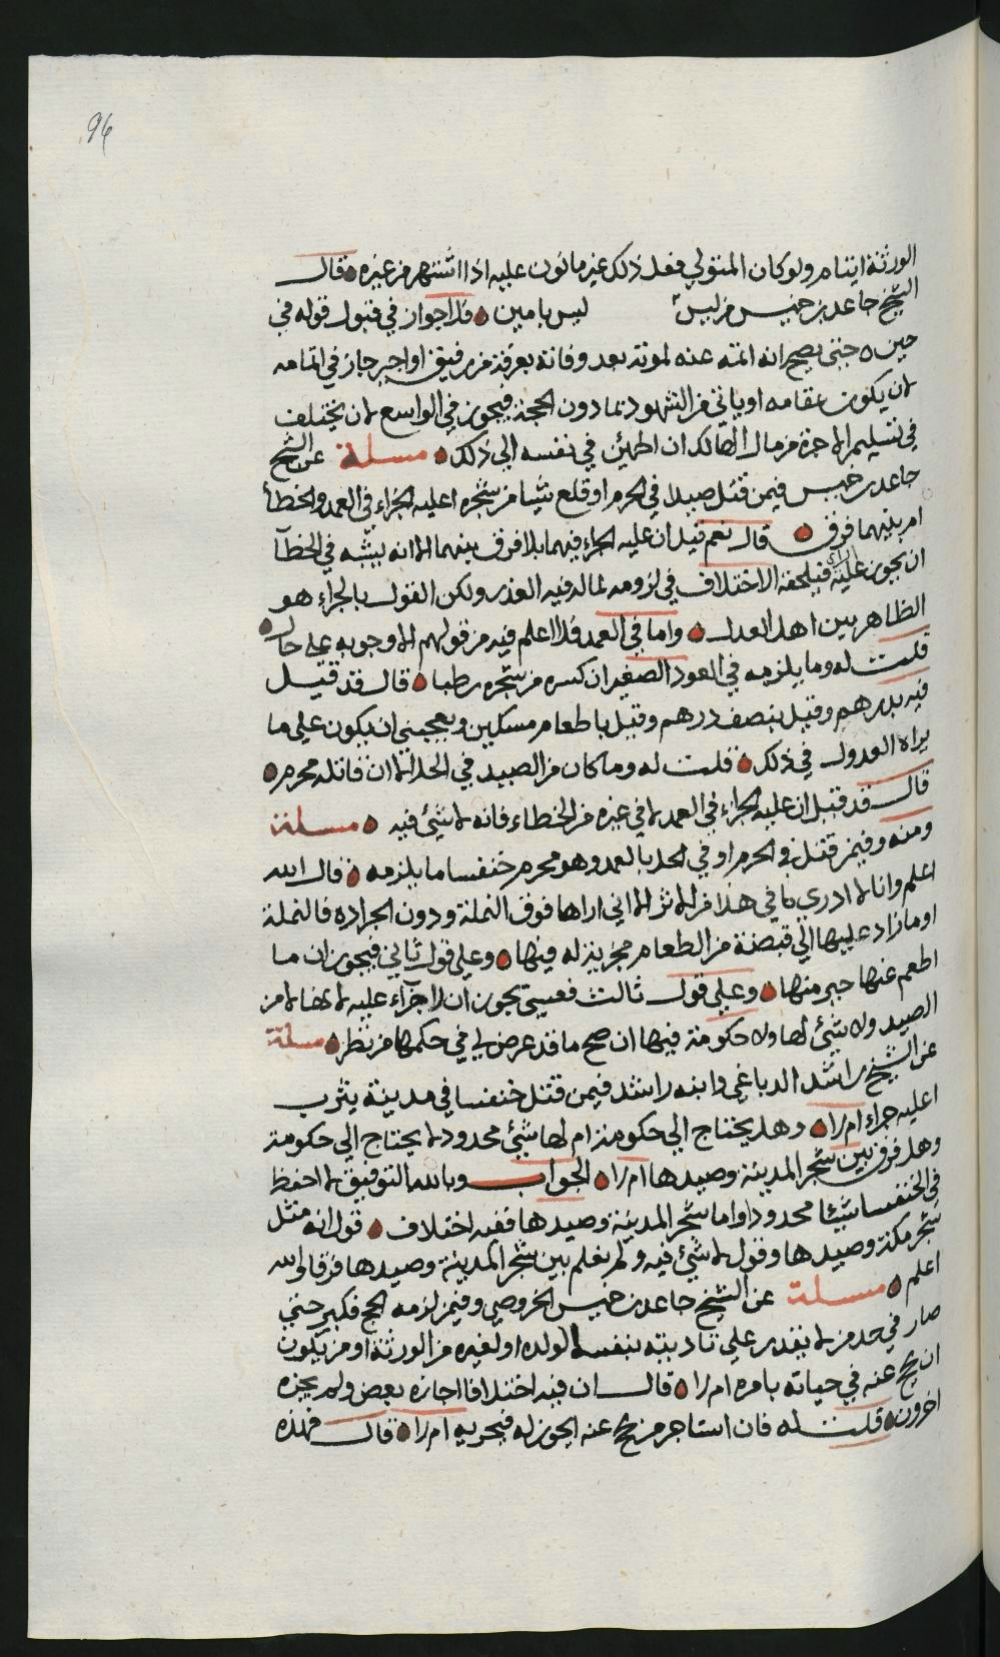 96
الورثة ايتام ولو كان المتولي فعل ذلك غير مامون عليه اذا اشتهر من غيره قال
الشيخ جاعد بن خميس من ليس ليس بامين فلا جواز في قبول قوله في
حين حتى يصح انه اتمه عنه لموته بعد وفاته بعرفة من رفيق او اجير جاز في اتمامه
لان يكون مقامه او ياتي من الشهود بما دون الحجة فيجوز في الواسع لان يختلف
في تسليم الاجرة من مال الهالك ان اطمئن في نفسه الى ذلك مسئلة عن الشيخ
جاعد بن خميس فيمن قتل صيدا في الحرم او قلع شيئا من شجره اعليه الجزاء في العمد والخطأ
ام بينهما فرق قال نعم قيل ان عليه الجزاء فيهما بلا فرق بينهما الا انه يشبه في الخطأ
ان يجوز عليه الراي فيلحقه الاختلاف في لزومه لما له فيه العذر ولكن القول بالجزاء هو
الظاهر بين اهل العدل واما في العمد فلا اعلم فيه من قولهم الا وجوبه على حال
قلت له وما يلزمه في العود الصغير ان كسره من شجره رطبا قال قد قيل
فيه بدرهم وقيل بنصف درهم وقيل باطعام مسكين ويعجبني ان يكون على ما
يراه العدول في ذلك قلت له وما كان من الصيد في الحل الا ان قاتله محرم
قال قد قيل ان عليه الجزاء في العمد لا في غيره من الخطاء فانه لا شيئ فيه مسئلة
ومنه وفيمن قتل في الحرم او في الحل بالعمد وهو محرم خنفسا ما يلزمه قال الله
اعلم وانا لا ادري ما في هذا من الاثر الا اني اراها فوق النملة ودون الجراده فالنملة
او ما زاد عليها الى قبضة من الطعام مجزية له فيها وعلى قول ثاني فيجوز ان ما
اطعم عنها خير منها وعلى قول ثالث فعسى يجوز ان لا جزاء عليه لانها لا من
الصيد ولا شيئ لها ولا حكومة فيها ان صح ما قد عرض لي في حكمها من نظر مسئلة
عن الشيخ راشد الدباغي وابنه راشد فيمن قتل خنفسا في مدينة يثرب
اعليه جزاء ام لا وهل يحتاج الي حكومة ام لها شيئ محدود لا يحتاج الي حكومة
وهل فرق بين شجر المدينة وصيدها ام لا الجواب وبالله التوفيق لا احفظ
في الخنفسا شيئا محدودا واما شجر المدينة وصيدها ففيه اختلاف قول انه مثل
شجر مكة وصيدها وقول لا شيئ فيه ولم نعلم بين شجر المدينة وصيدها فرقا والله
اعلم مسئلة عن الشيخ جاعد بن خميس الخروصي وفيمن لزمه الحج فكبر حتى
صار في حد من لا يقدر على تاديته بنفسه الولده او لغيره من الورثة او من يكون
ان يحج عنه في حياته بامره ام لا قال ان فيه اختلافا اجازه بعض ولم يجزه
اخرون قلت له فان استاجر من يحج عنه ايجوز له فيجزيه ام لا قال فهذه